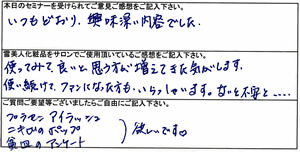 本日のセミナーを受けられてご意見ご感想をご記入下さい。
いつもどおり、興味深い内容でした。
雪美人化粧品をサロンでご使用頂いているご感想をご記入下さい。
使ってみて、良いと思う方が増えてきた気がします。
使い続けて、ファンになった方も、いらっしゃいます。ないと不安と....
ご質問ご要望等ございましたらご自由にご記入下さい。
プラセン アイラッシュ
ニキビのポップ 欲しいです。
アンケート